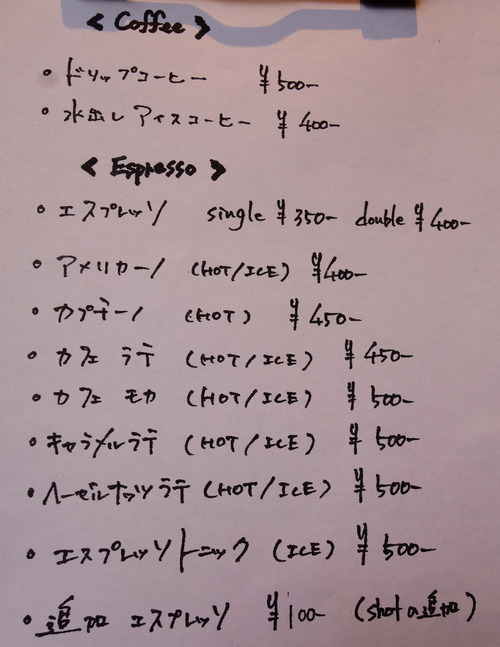 < Coffee >
・ドリップコーヒー ¥500-
・水出し アイスコーヒー ¥400-
< Espresso >
・エスプレッソ single ¥350- double ¥400-
・アメリカーノ (HOT/ICE) ¥400-
・カプチーノ (HOT) ¥450-
・カフェ ラテ (HOT/ICE) ¥450-
・カフェ モカ (HOT/ICE) ¥500-
・キャラメルラテ (HOT/ICE) ¥500-
・ヘーゼルナッツラテ (HOT/ICE) ¥500-
・エスプレッソトニック (ICE) ¥500-
・追加 エスプレッソ ¥100- (shotの追加)